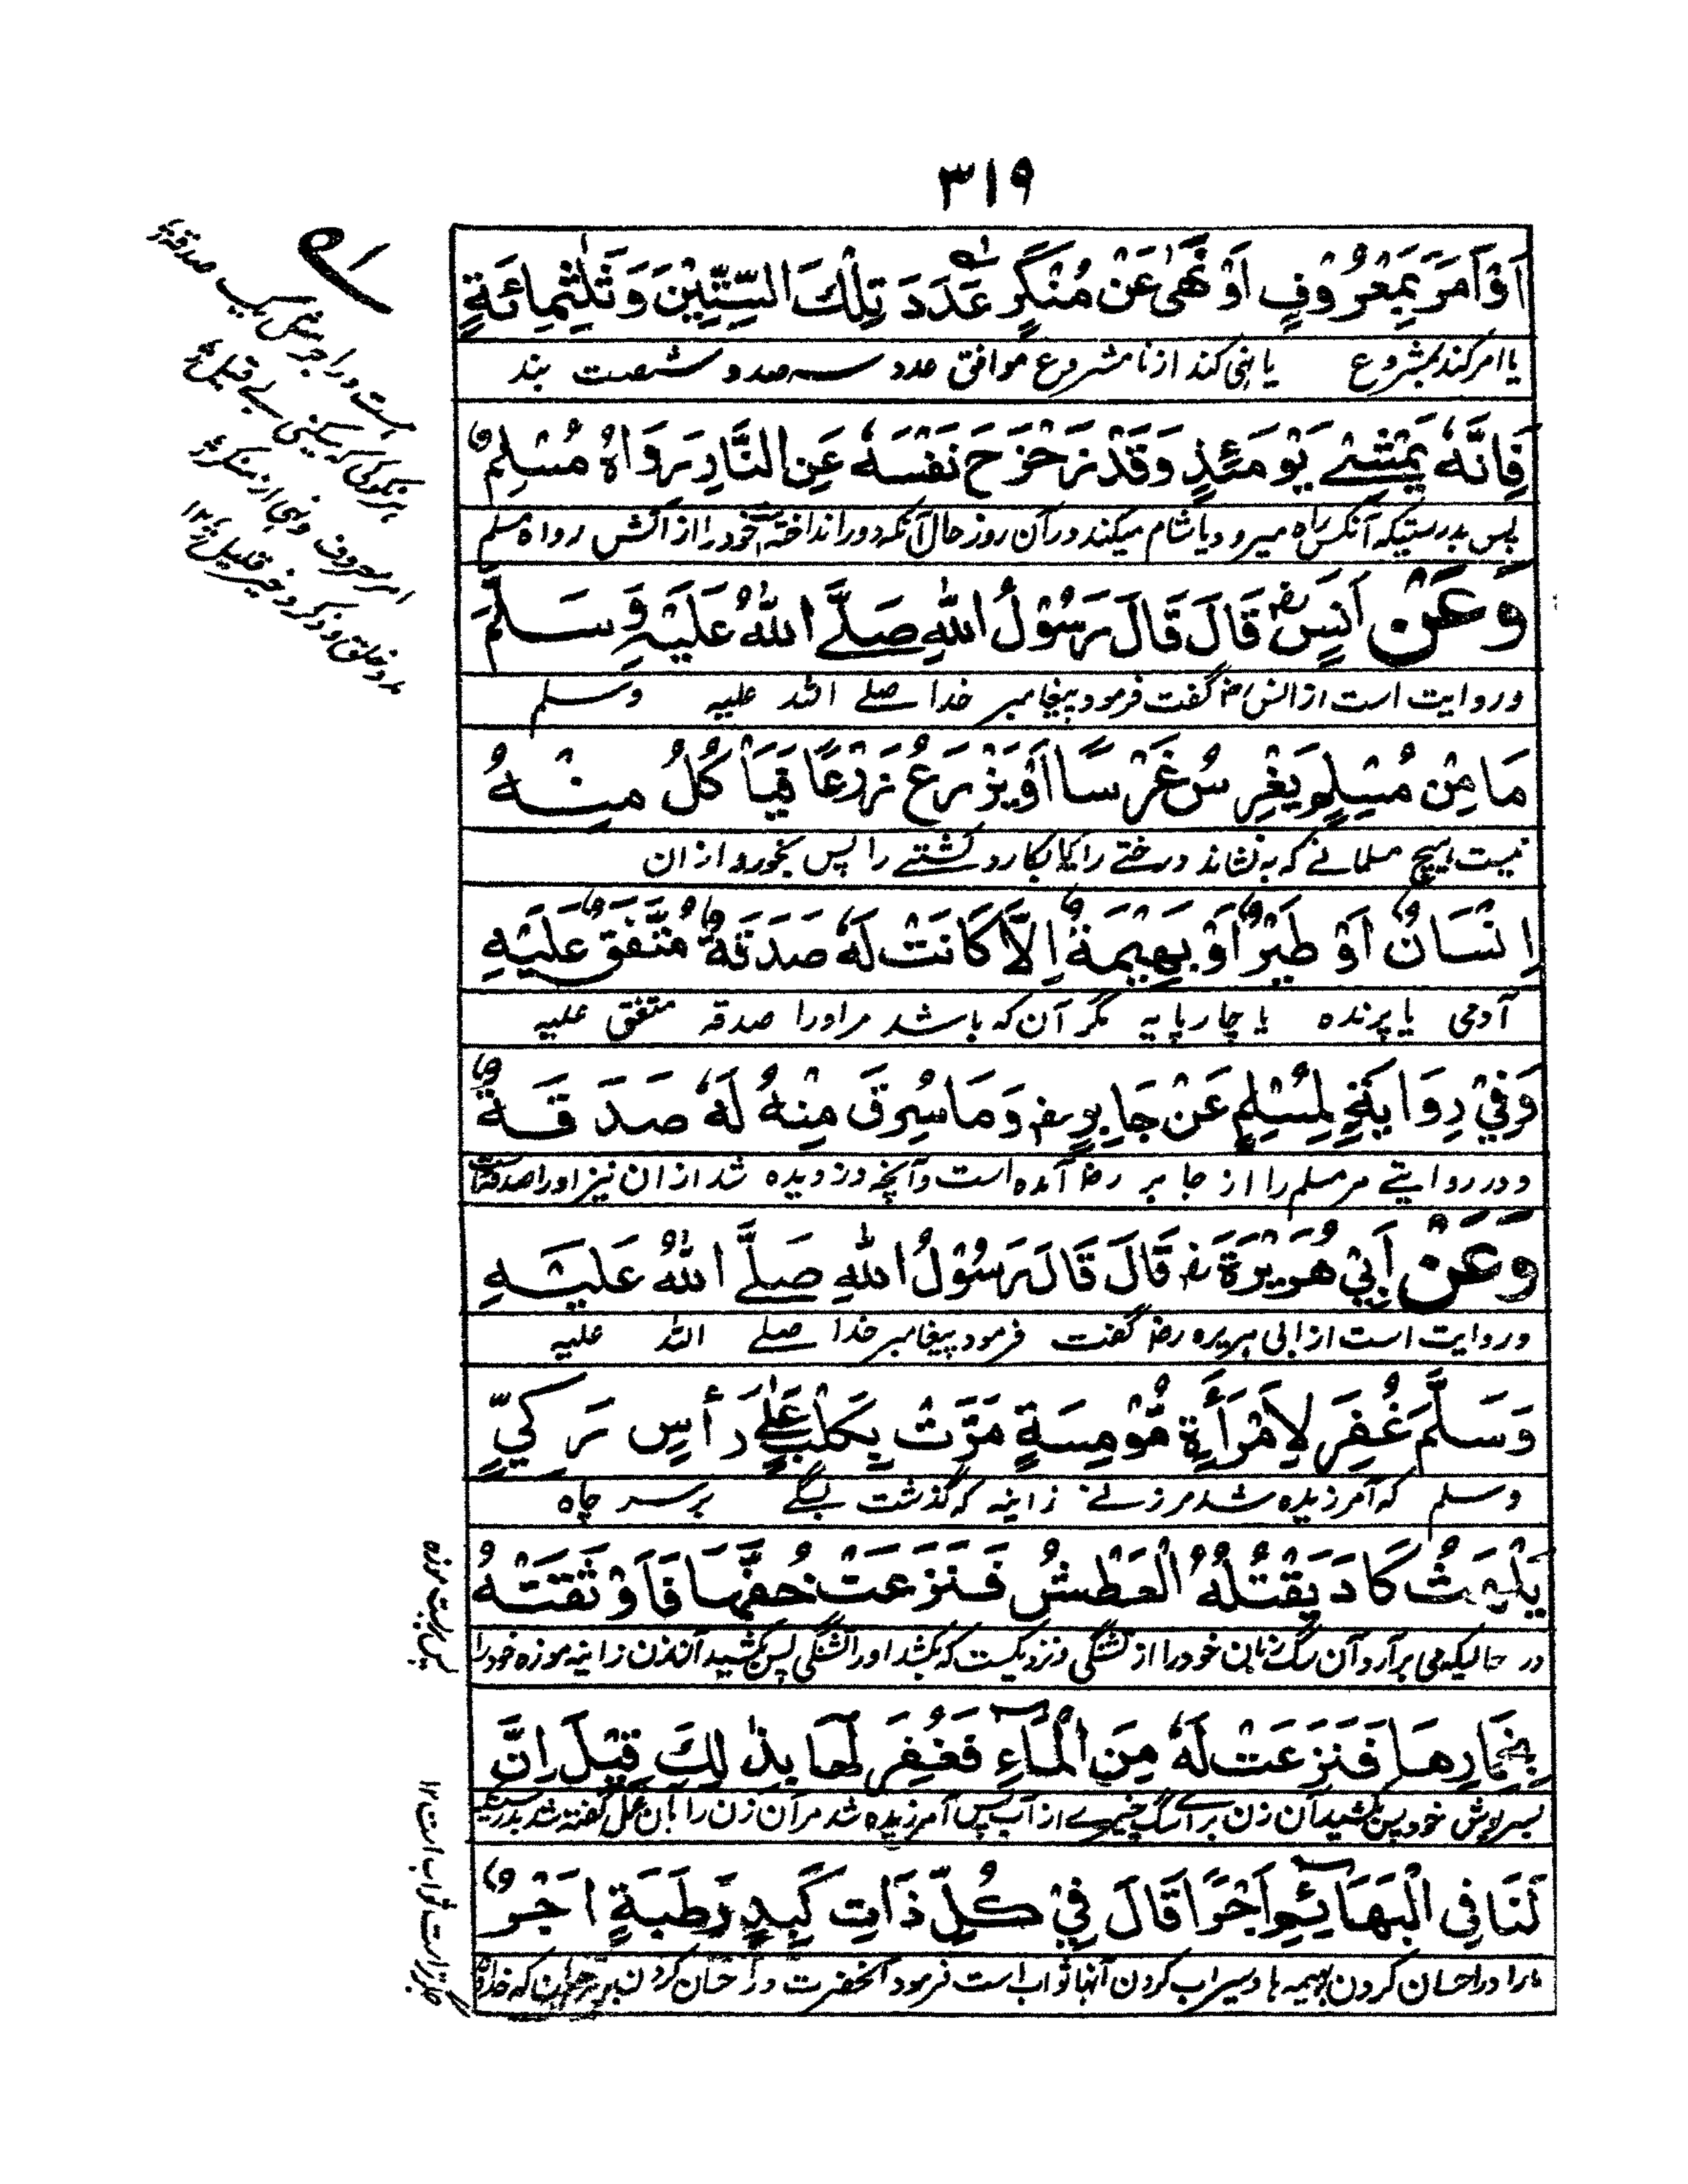 ۳۱۹
اَوْ اَمَرَ بِمَعْرُوْفٍ اَوْ نَهٰى عَنْ مُنْكَرٍ عَدَدَ تِلْكَ السِّتِّيْنَ وَثَلٰثِمِائَةٍ
یا امر کند بمشروع یا نہی کند از نامشروع موافق عدد سہ صد و شصت بند
فَاِنَّهٗ يَمْشِيْ يَوْمَئِذٍ وَقَدْ زَحْزَحَ نَفْسَهٗ عَنِ النَّارِ رَوَاهُ مُسْلِمٌ
پس بدرستیکہ آنکس راہ میرود یا شام میکند در آن روز حال آنکہ دور انداختہ خود را از آتش رواہ مسلم
وَعَنْ اَنَسٍ رض قَالَ قَالَ رَسُوْلُ اللهِ صَلَّے اللهُ عَلَيْهِ وَسَلَّمَ
و روایت است از انس رض گفت فرمود پیغامبر خدا صلے اللہ علیہ وسلم
مَا مِنْ مُسْلِمٍ يَغْرِسُ غَرْسًا اَوْ يَزْرَعُ زَرْعًا فَيَأْكُلُ مِنْهُ
نیست ہیچ مسلمانے کہ بہ نشاند درختے را یا بکارد کشتے را پس بخورد از ان
اِنْسَانٌ اَوْ طَيْرٌ اَوْ بَهِيْمَةٌ اِلَّا كَانَتْ لَهٗ صَدَقَةٌ مُتَّفَقٌ عَلَيْهِ
آدمی یا پرندہ یا چارپایہ مگر آن کہ باشد مر اورا صدقہ متفق علیہ
وَفِيْ رِوَايَةٍ لِمُسْلِمٍ عَنْ جَابِرٍ رض وَمَا سُرِقَ مِنْهُ لَهٗ صَدَقَةٌ
و در روایتے مر مسلم را از جابر رض آمدہ است و آنچہ دزدیدہ شد از ان نیز اورا صدقہ است
وَعَنْ اَبِيْ هُرَيْرَةَ رض قَالَ قَالَ رَسُوْلُ اللهِ صَلَّے اللهُ عَلَيْهِ
و روایت است از ابی ہریرہ رض گفت فرمود پیغامبر خدا صلے اللہ علیہ
وَسَلَّمَ غُفِرَ لِاِمْرَأَةٍ مُّوْمِسَةٍ مَرَّتْ بِكَلْبٍ عَلٰے رَأْسِ رَكِيٍّ
وسلم کہ آمرزیدہ شد مر زنے زانیہ کہ گذشت بسگے بر سر چاہ
يَلْهَثُ كَادَ يَقْتُلُهُ الْعَطَشُ فَنَزَعَتْ خُفَّهَا فَاَوْثَقَتْهُ
در حالیکہ می برآرد آن سگ زبان خود را از تشنگی و نزدیکست کہ بکشد اورا تشنگی پس بکشید آن زن زانیہ موزہ خود را
بِخِمَارِهَا فَنَزَعَتْ لَهٗ مِنَ الْمَاءِ فَغُفِرَ لَهَا بِذٰلِكَ قِيْلَ اِنَّ
بسرپوش خود پس بکشید آن زن براے سگ چیزے از آب پس آمرزیدہ شد مر آن زن را بان عمل گفتہ شد بدرستیکہ
لَنَا فِى الْبَهَائِمِ اَجْرًا قَالَ فِيْ كُلِّ ذَاتِ كَبِدٍ رَطْبَةٍ اَجْرٌ
مارا در احسان کردن بہیمہ ہا و سیراب کردن آنہا ثواب است فرمود آنحضرت در احسان کردن